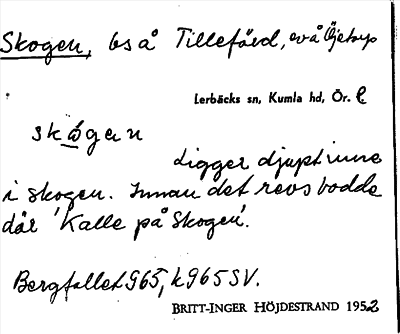 Skogen, bs å Tillefård, evå Öjetorp
Lerbäcks sn, Kumla hd, Ör. l.
skågen
Ligger djupt inne
i skogen. Innan det revs bodde
där 'Kalle på Skogen'.
Bergfallet 965, k 965 SV.
BRITT-INGER HÖJDESTRAND 1952